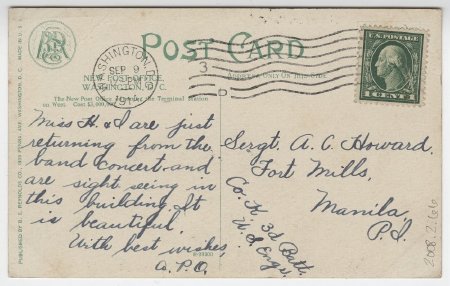 POST CARD
MADE IN U.S.A.
WASHINGTON, D.C.
SEP 9
191
3
ADDRESS ONLY ON THIS SIDE
NEW POST OFFICE,
WASHINGTON, D. C.
The New Post Office the Terminal Station
on West. Cost $3,000,000
U.S. POSTAGE
1 CENT 1
Miss H. & I are just
returning from the
band concert and
are sight seeing in
this building. It
is beautiful.
With best wishes,
A.P.O.
Sergt. A. C. Howard,
Fort Mills,
Manila,
P.I.
Co. K, 3d Batt.
U.S. Engrs.
PUBLISHED BY B. S. REYNOLDS CO., WASHINGTON, D. C.
2008.2.66